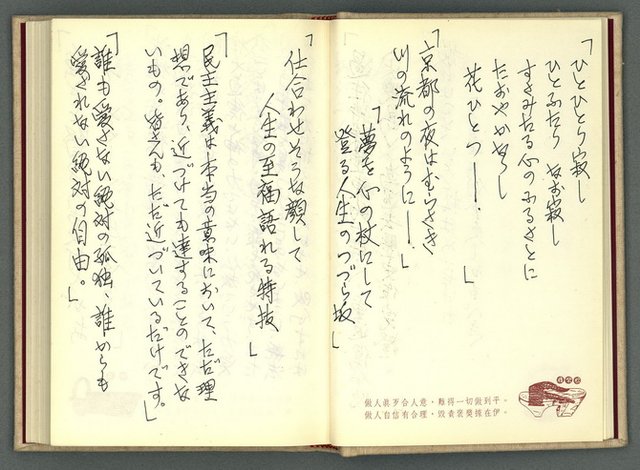 「ひとひとり寂し
ひとふたり なお寂し
すさみたる心のふるさとに
たおやかなりし
花ひとつ――.」
「京都の夜はむらさき
川の流れのように――.」
「夢を心の杖にして
登る人生のつづら坂」
做人歲歹合人意・難得一切做到平。
做人自信有合理・毀責裒奬據在伊。
「仕合わせそうな顔して
人生の至福語れる特技」
「民主主義は本当の意味において、ただ理
想であり、近づけても達することのできな
いもの。皆さんも、ただ近づいているだけです。」
「誰も愛さない絶対の孤独、誰からも
愛されない絶対の自由。」